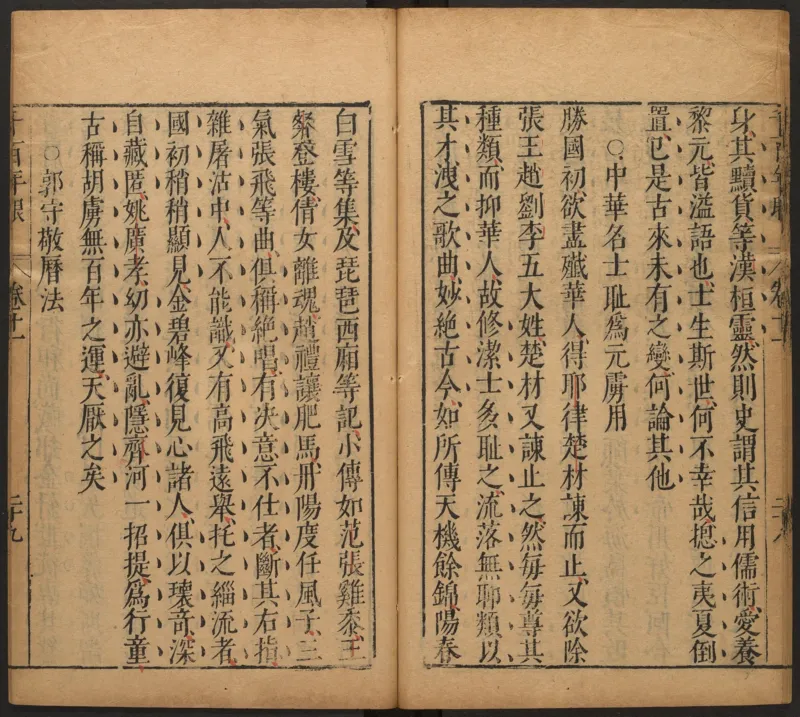 千百年眼 卷十一 二十八
身其黷貨等漢桓靈然則史謂其信用儒術愛養
黎元皆溢語也士生斯世何不幸哉揔之夷夏倒
置已是古來未有之變何論其他
○中華名士恥爲元虜用
勝國初欲盡殲華人得耶律楚材諫而止又欲除
張王趙劉李五大姓楚材又諫止之然每每尊其
種類而抑華人故修潔士多恥之流落無聊類以
其才洩之歌曲妙絕古今如所傳天機餘錦陽春
白雪等集及琵琶西廂等記小傳如范張雞黍王
粲登樓倩女離魂趙禮讓肥馬丹陽度任風子三
氣張飛等曲俱稱絕唱有决意不仕者斷其右指
雜屠沽中人不能識又有高飛遠舉托之緇流者
國初稍稍顯見金碧峰復見心諸人俱以瓌奇深
自藏匿姚廣孝幼亦避亂隱齊河一招提爲行童
古稱胡虜無百年之運天厭之矣
○郭守敬曆法
千百年眼 卷十一 二十九